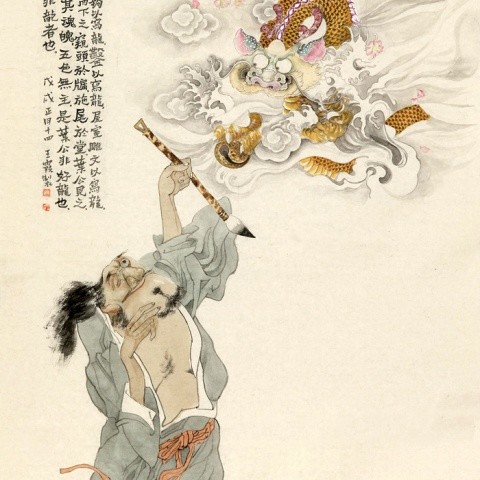 以寫龍鑿以寫龍屋室雕文以寫龍
而下之窺頭於牖施尾於堂葉公見之
其魂魄五色無主是葉公非好龍也
非龍者也
戊戌正月十四 王霞製